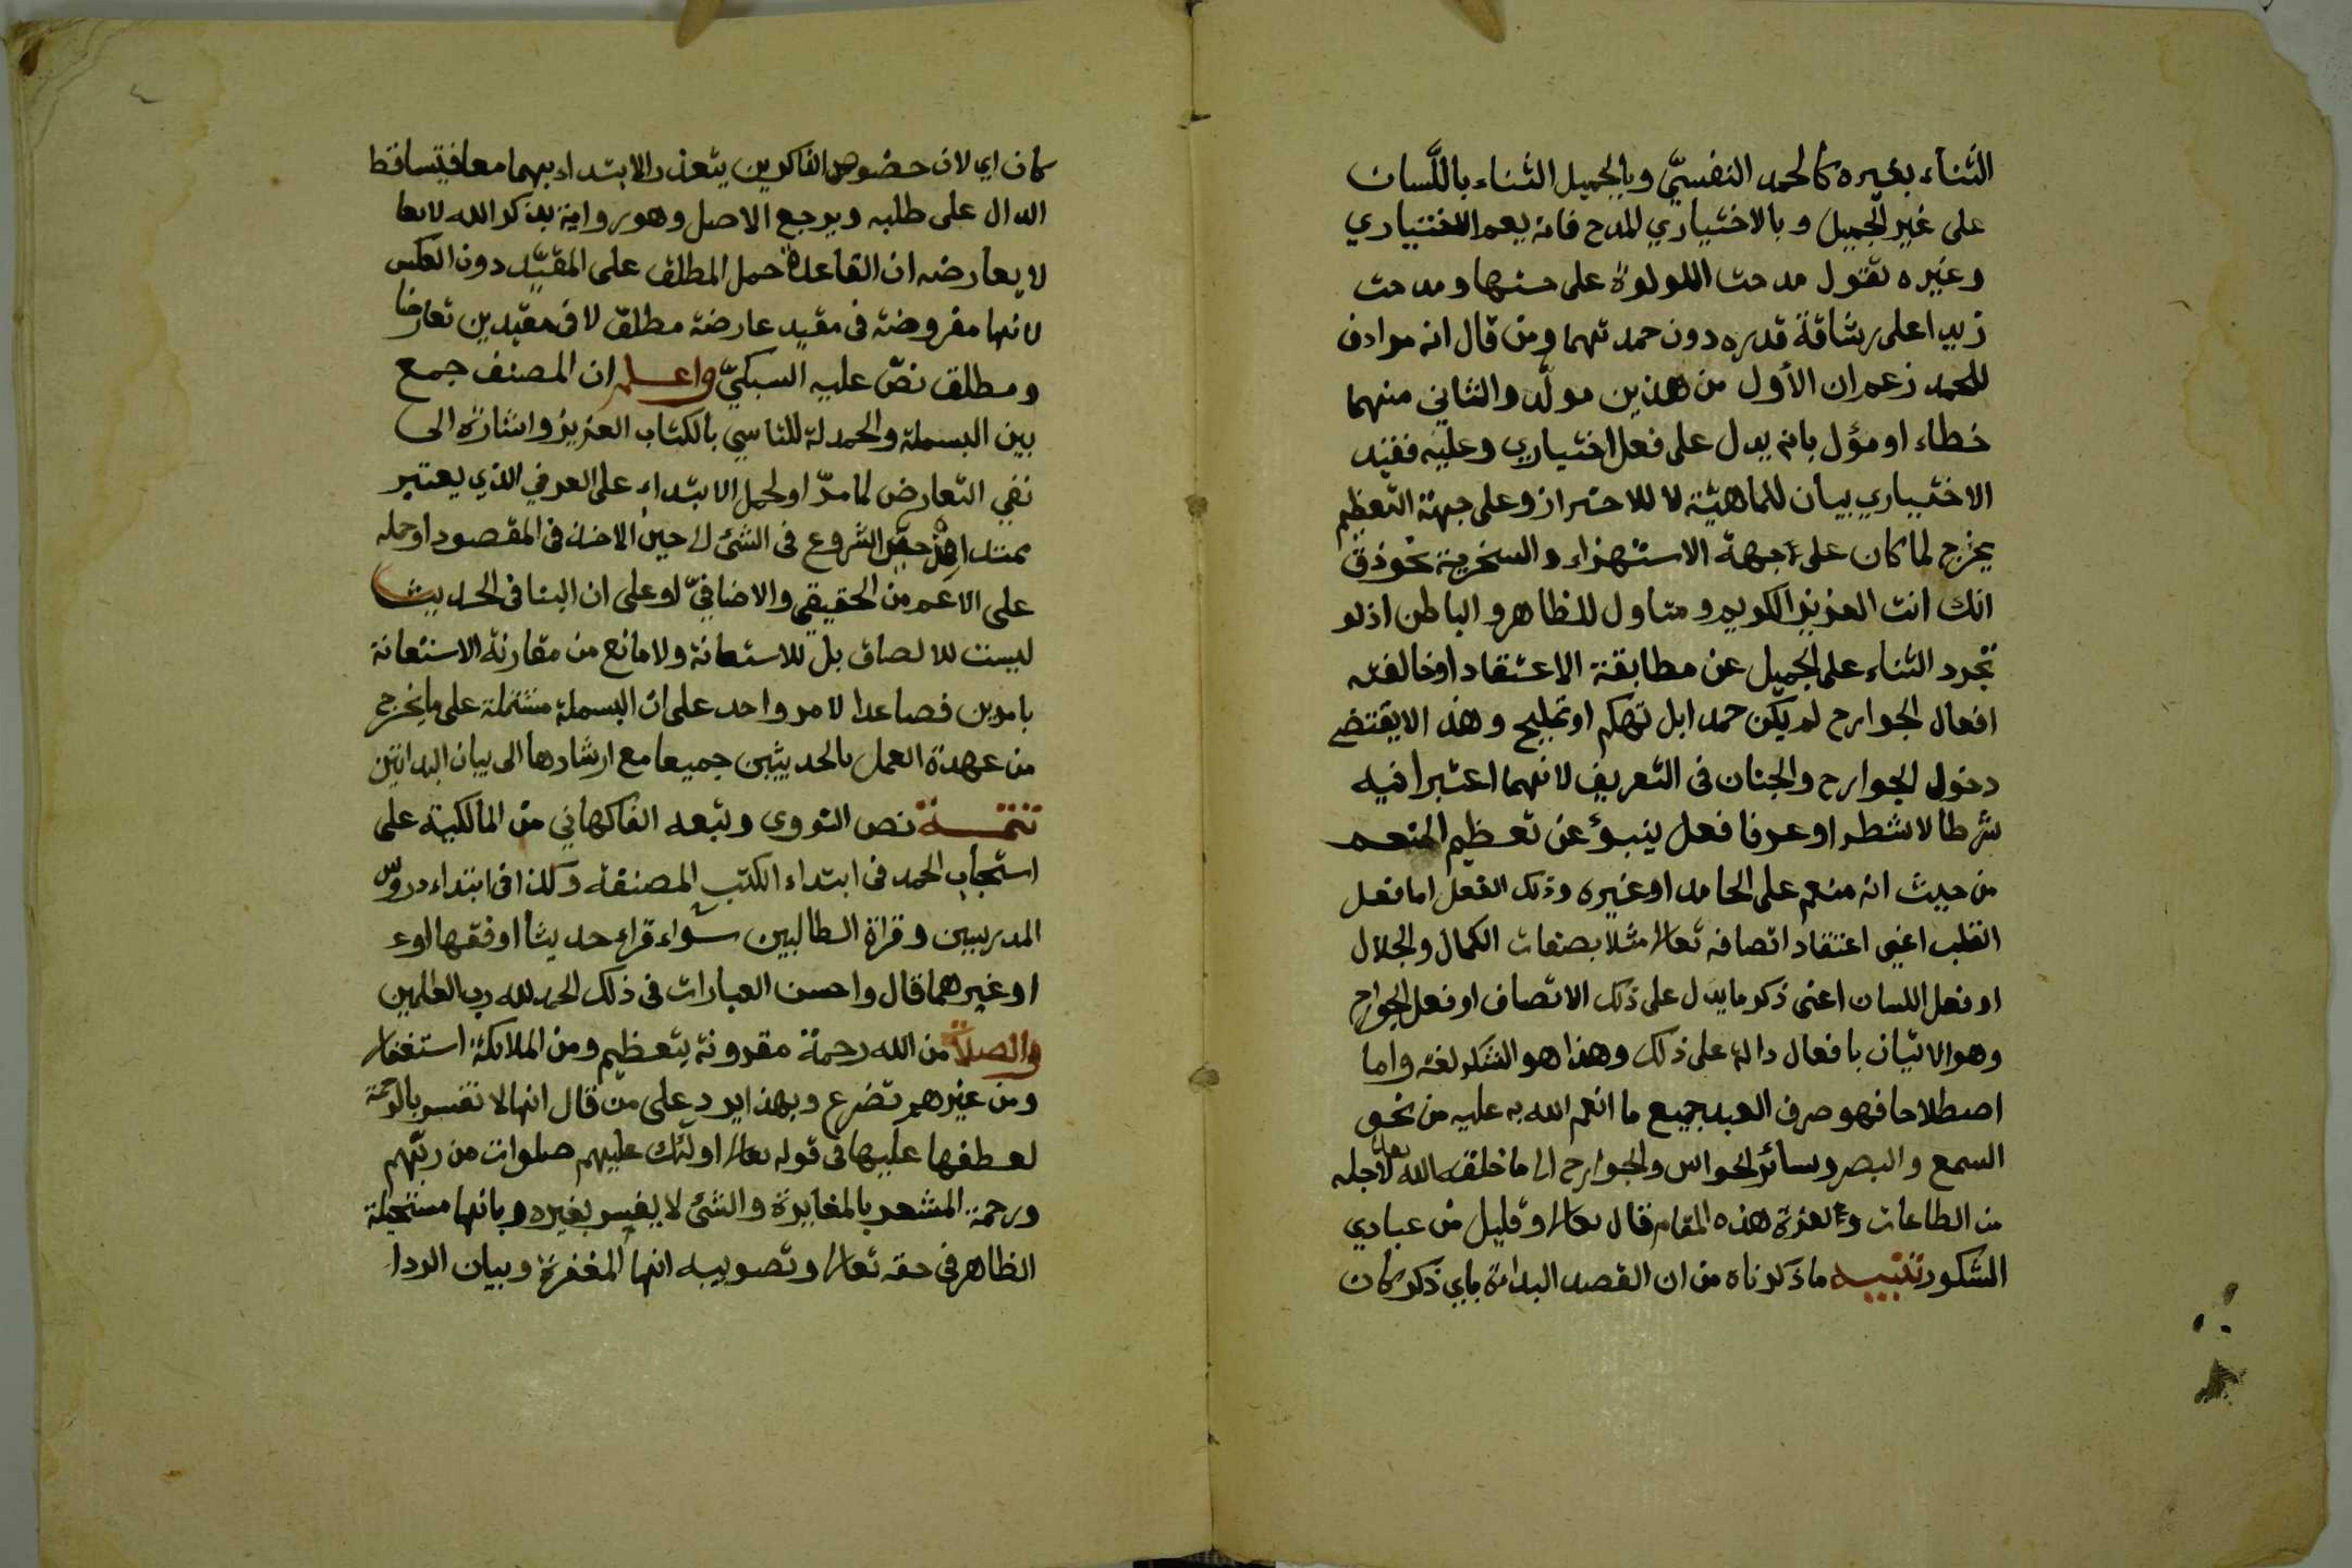 الثناء بغيره كالحمد النفسيّ وبالجميل الثناء باللّسان
على غير الجميل وبالاختياري المدح فانه يعم الاختياري
وغيره تقول مدحت اللولوة على حسنها ومدحت
زيدا على رشاقة قدره دون حمدتهما ومن قال انه مرادف
للحمد زعم ان الأول من هذين مولّد والثاني منهما
خطاء او مؤل بانه يدل على فعل اختياري وعليه فقيد
الاختياري بيان للماهيّة لا للاحتراز وعلى جهة التعظيم
يخرج لما كان على جهة الاستهزاء والسخرية نحو ذق
انك انت العزيز الكريم ومتناول للظاهر والباطن اذ لو
تجرد الثناء على الجميل عن مطابقة الاعتقاد او خالفته
افعال الجوارح لم يكن حمدا بل تهكم او تمليح وهذا لا يقتضي
دخول الجوارح والجنان في التعريف لانهما اعتبرا فيه
شرطا لا شطرا وعرفا فعل ينبؤ عن تعظيم المنعم
من حيث انه منعم على الحامد او غيره وذلك الفعل اما فعل
القلب اعني اعتقاد اتصافه تعالى مثلا بصفات الكمال والجلال
او فعل اللسان اعنى ذكر ما يدل على ذلك الاتصاف او فعل الجوارح
وهو الاتيان بافعال دالة على ذلك وهذا هو الشكر لغة واما
اصطلاحا فهو صرف العبد جميع ما انعم الله به عليه من نحو
السمع والبصر وسائر الحواس والجوارح الى ما خلقه الله تعالى لاجله
من الطاعات ولعزة هذه المقام قال تعالى وقليل من عبادي
الشكور تنبيه ما ذكرناه من ان القصد البداءة باي ذكر كان
كان اي لان خصوص الذاكرين يتعذر الابتداء بهما معا فيتساقط
الدال على طلبه ويرجع الاصل وهو رواية بذكر الله لانها
لا يعارضه ان القاعدة حمل المطلق على المقيّد دون العكس
لانها مفروضة فى مقيد عارضة مطلق لا في مقيدين تعارضا
ومطلق نصّ عليه السبكيّ واعلم ان المصنف جمع
بين البسملة والحمدلة للتاسي بالكتاب العزيز واشارة الى
نفي التعارض لما مرّ او لحمل الابتداء على العرفي الذي يعتبر
ممتدا من حين الشروع فى الشئ الى حين الاخذ فى المقصود او حمله
على الاعم من الحقيقي والاضافيّ او على ان البا فى الحديث
ليست للالصاق بل للاستعانة ولا مانع من مقارنة الاستعانة
بامرين فصاعدا لامر واحد على ان البسملة مشتملة على ما يخرج
من عهدة العمل بالحديثين جميعا مع ارشادها الى بيان البدائتين
تتمة نص النووى وتبعه الفاكهاني من المالكية على
استحباب الحمد فى ابتداء الكتب المصنفة وكذا فى ابتداء دروس
المدرسين وقراة الطالبين سواء قراء حديثا او فقها او ع
او غيرهما قال واحسن العبارات فى ذلك الحمد لله رب العلمين
والصلاة من الله رحمة مقرونة بتعظيم ومن الملائكة استغفار
ومن غيرهم تضرع وبهذا يرد على من قال انها لا تفسر بالرحمة
لعطفها عليها فى قوله تعالى اولئك عليهم صلوات من ربّهم
ورحمة المشعر بالمغايرة والشئ لا يفسر بغيره وبانها مستحيلة
الظاهر في حقه تعالى وتصويبه انها المغفرة وبيان الرد ا